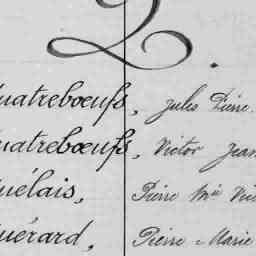 Q.
uatrebœufs, Jules Pierre.
uatrebœufs, Victor Jean
uélais, Pierre Mie Vic
uérard, Pierre-Marie